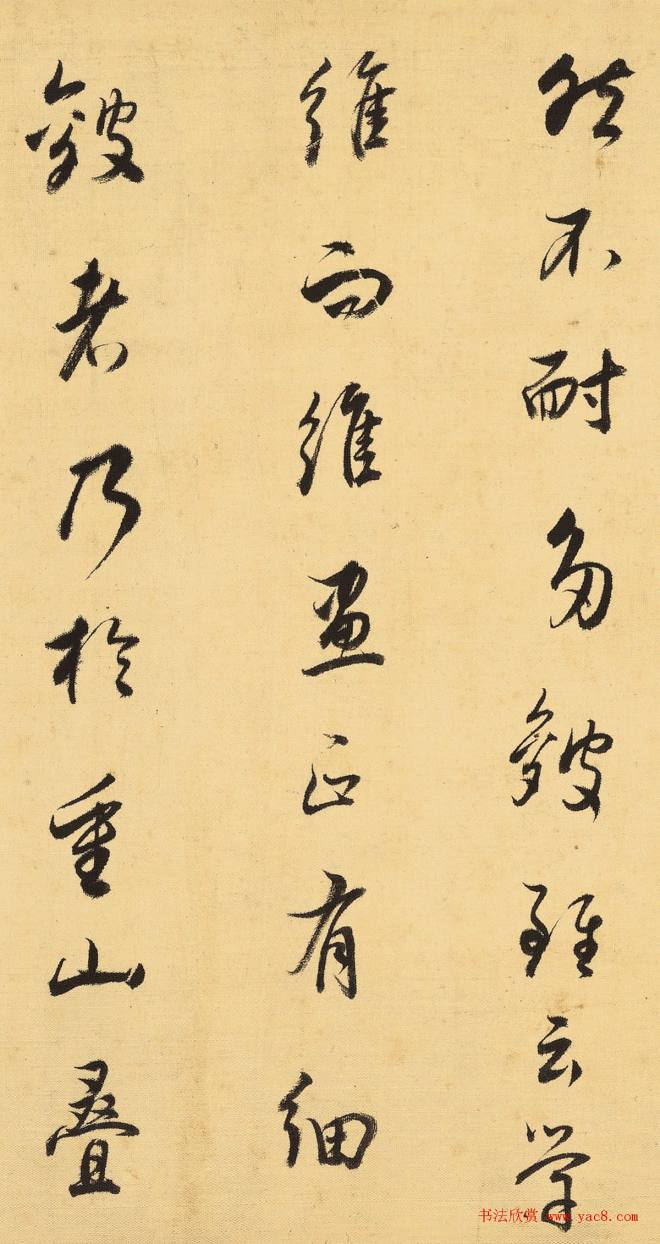 然不耐多皴雖云學
維而維畫正有細
皴者乃於重山疊
书法欣赏 www.yac8.com